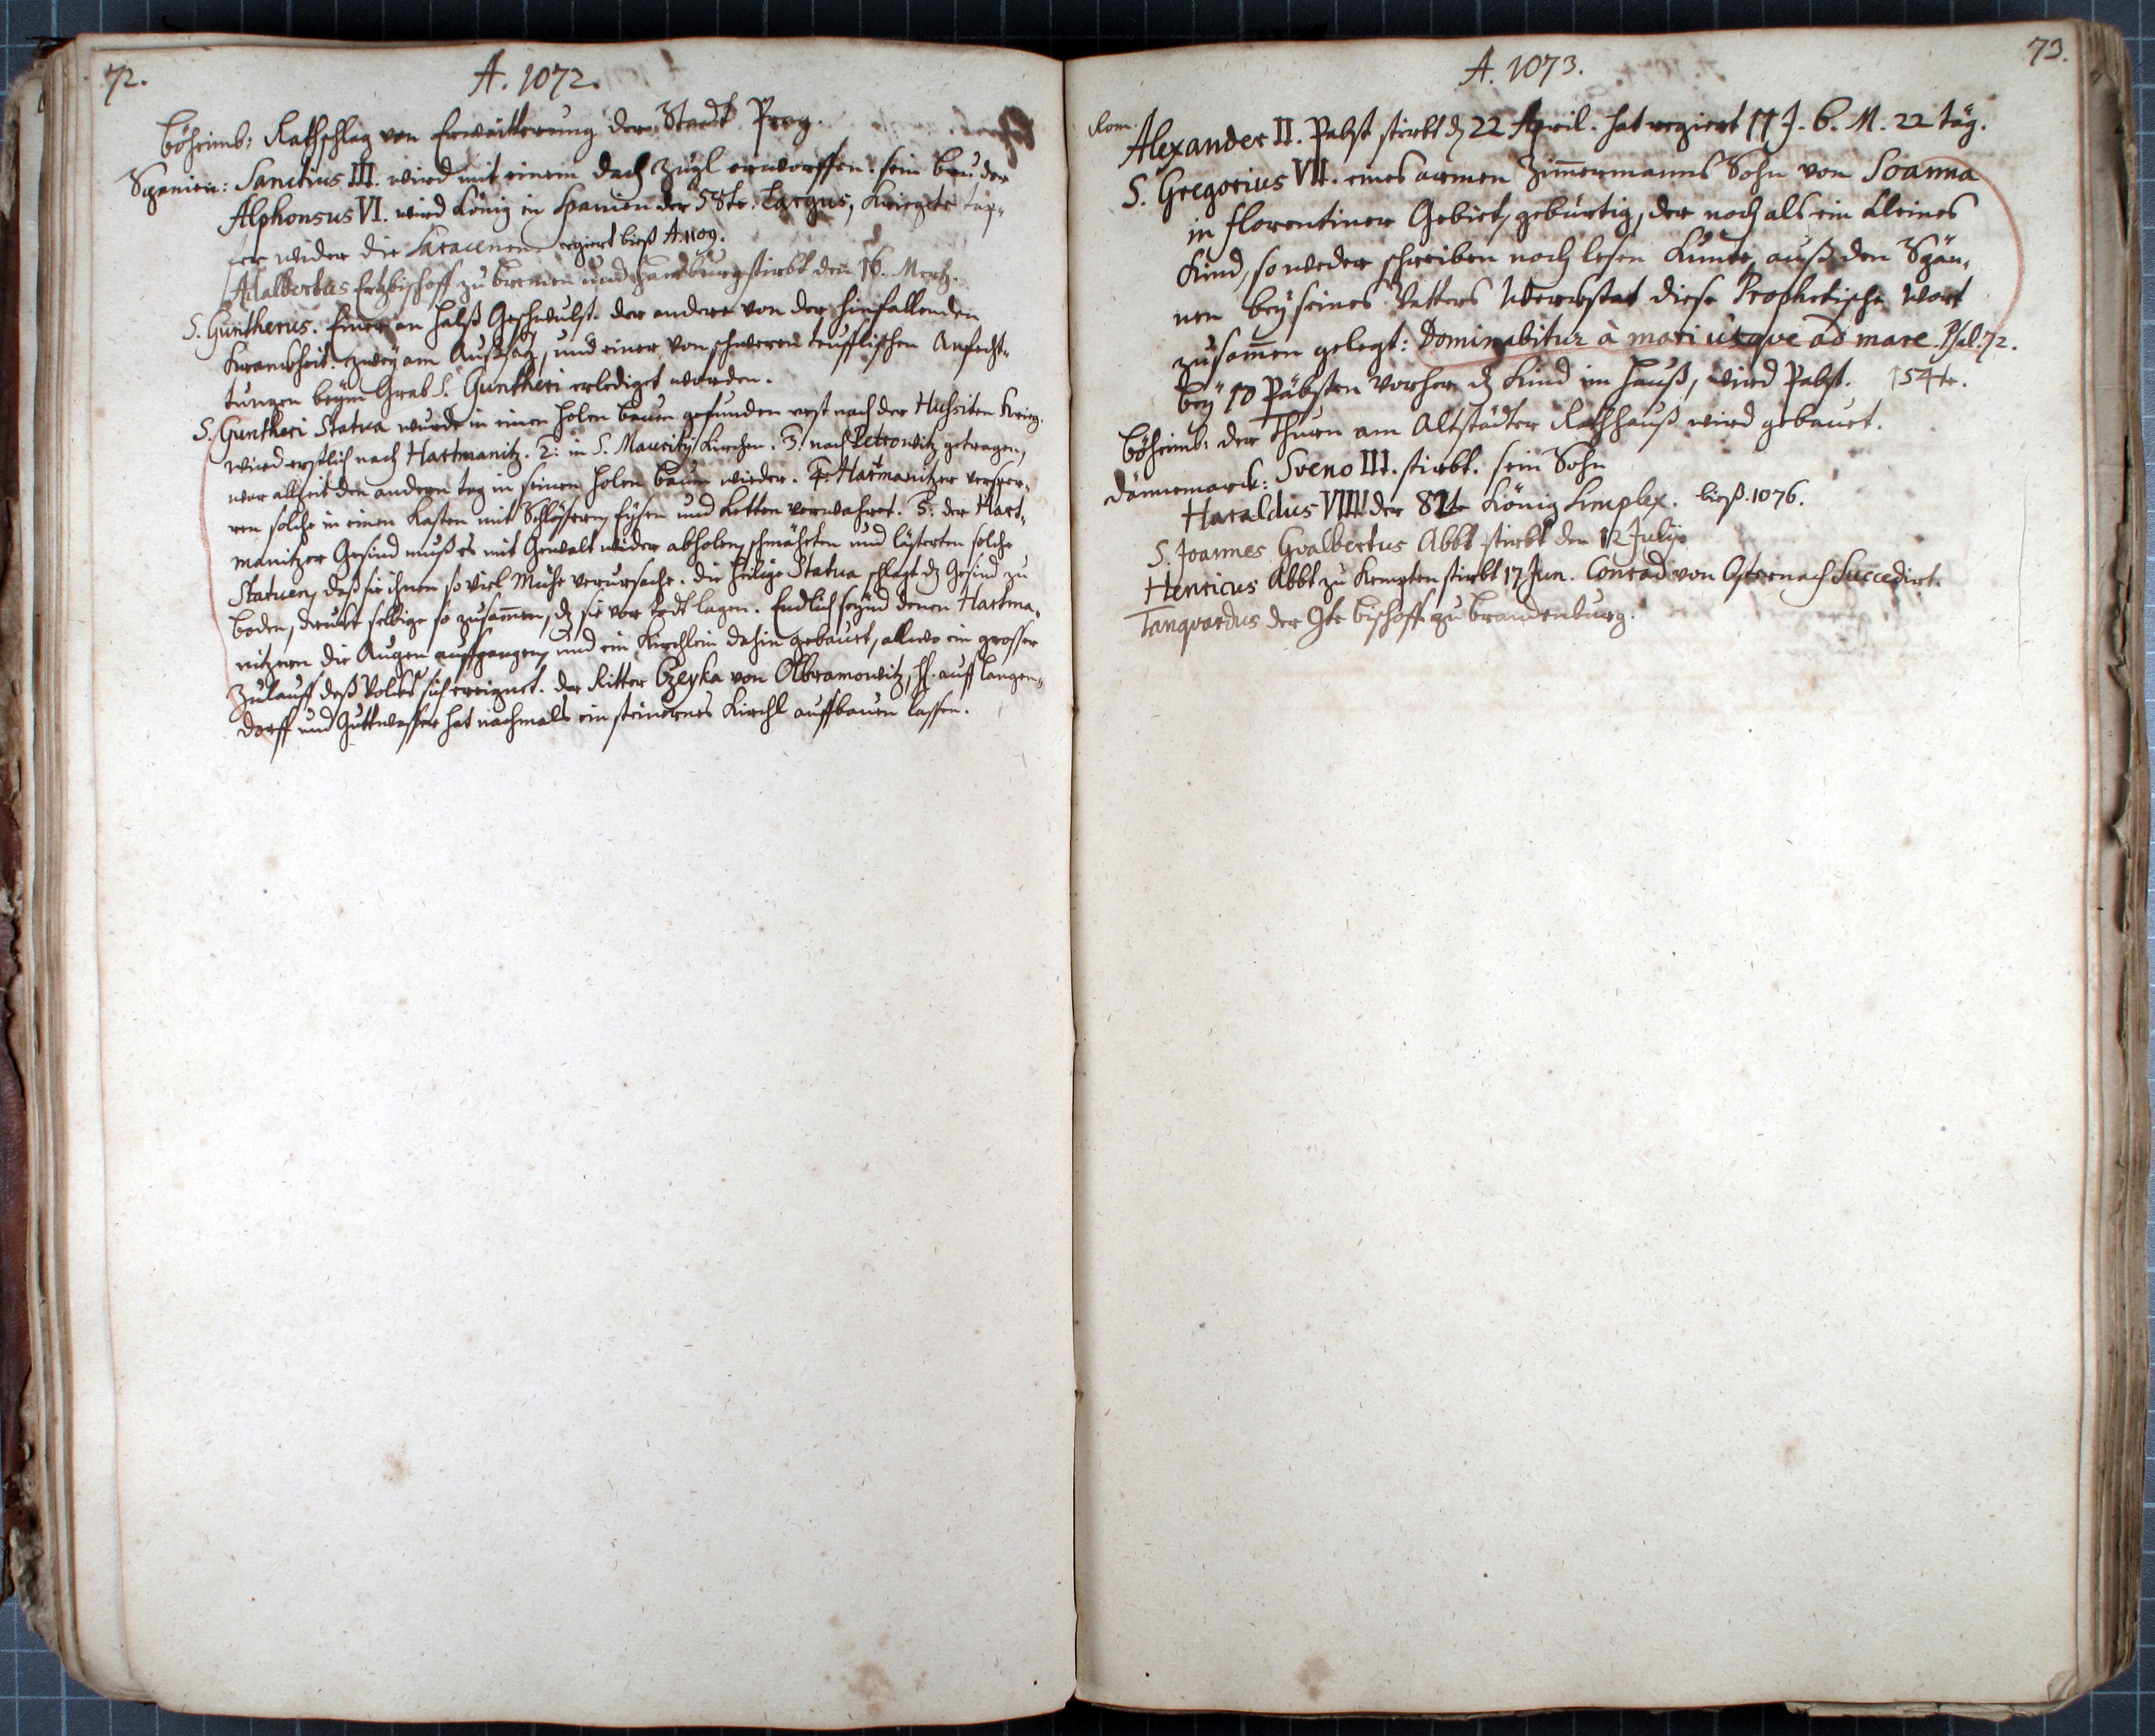 72.
A. 1072.
Böheimb: Rathschlag von Erweitterung der Stadt Prag.
Spanien: Sanctius III. wird mit einem Dach Zügl erworffen. sein bruder
Alphonsus VI. wird König in Spanien der 58te. Largus, Kriegete tap-
fer wider die Saracenen. regiert bieß A. 1109.
Adalbertus Ertzbischoff zu bremen und Hamburg stirbt den 16. Mertz.
S. Guntherus. Einer an Halß Geschwulst. der andere von der hinfallenden
Kranckheit. zwey am Außsatz, und einer von schweren teufflischen Anfecht-
tungen beym Grab S. Guntheri erlediget worden.
S. Guntheri Statua wurde in einen holen baum gefunden erst nach der Hussiten Krieg.
wird erstlich nach Hartmanitz. 2: in S. Mauritij Kirchen. 3. nach Petrowitz getragen,
war allzeit den andern tag in seinen holen baum wieder. 4. Hartmanitzer versper-
ren solche in einen Kasten mit Schlössern, Eysen und Ketten verwahret. 5. der Hart-
manitzer Gesind muß es mit Gewalt wider abholen, schmäheten und lästerten solche
Statuen, daß sie ihnen so viel Mühe verursache. die Heilige Statua schlagt dz Gesind zu
boden, druckt selbige so zusam̄en, dz sie vor todt lagen. Endlich seynd denen Hartma-
nitzern die Augen auffgangen, und ein Kirchlein dahin gebauet, allwo ein grosser
Zulauff deß Volcks sich ereignet. der Ritter Czeyka von Olbramowitz, H. auff Langen-
dorff und Guttwasser hat nachmals ein steinernes Kirchl auffbauen lassen.
73.
A. 1073.
Rom.
Alexander II. Pabst stirbt dz 22 April. hat regiert 11 J. 6. M. 22 täg.
S. Gregorius VII. eines armen Zim̄ermanns Sohn von Soanna
in florentiner Gebiet, gebürtig, der noch als ein kleines
Kind, so weder schreiben noch lesen kunte, auß den Spän-
nen bey seines Vatters Werckstat diese Prophetische Wort
zusam̄en gelegt: Dominabitur à mari usque ad mare. Psal. 72.
bey 10 Päbsten vorher dz Kind im Hauß, wird Pabst. 154te.
Böheimb: der Thurn am Altstädter Rathhauß wird gebauet.
Dännemarck: Sveno III. stirbt. sein Sohn
Haraldus VIII der 82te König Simplex. bieß. 1076.
S. Joannes Gualbertus Abbt stirbt den 12 Julij.
Henricus Abbt zu Kempten stirbt 17 Jun. Conrad von succedirt.
Tanquardus der 9te bischoff zu brandenburg.